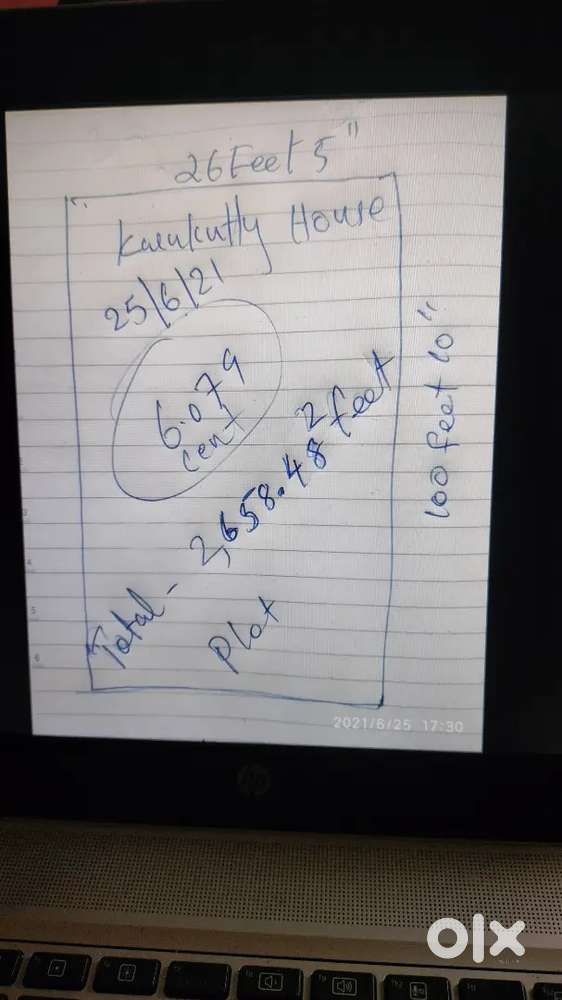 26 Feet 5"
Karukutty House
25/6/21
6.079
cent
100 feet 10"
Total - 2,658.48 feet 2
Plot
2021/6/25 17:30
hp
olx